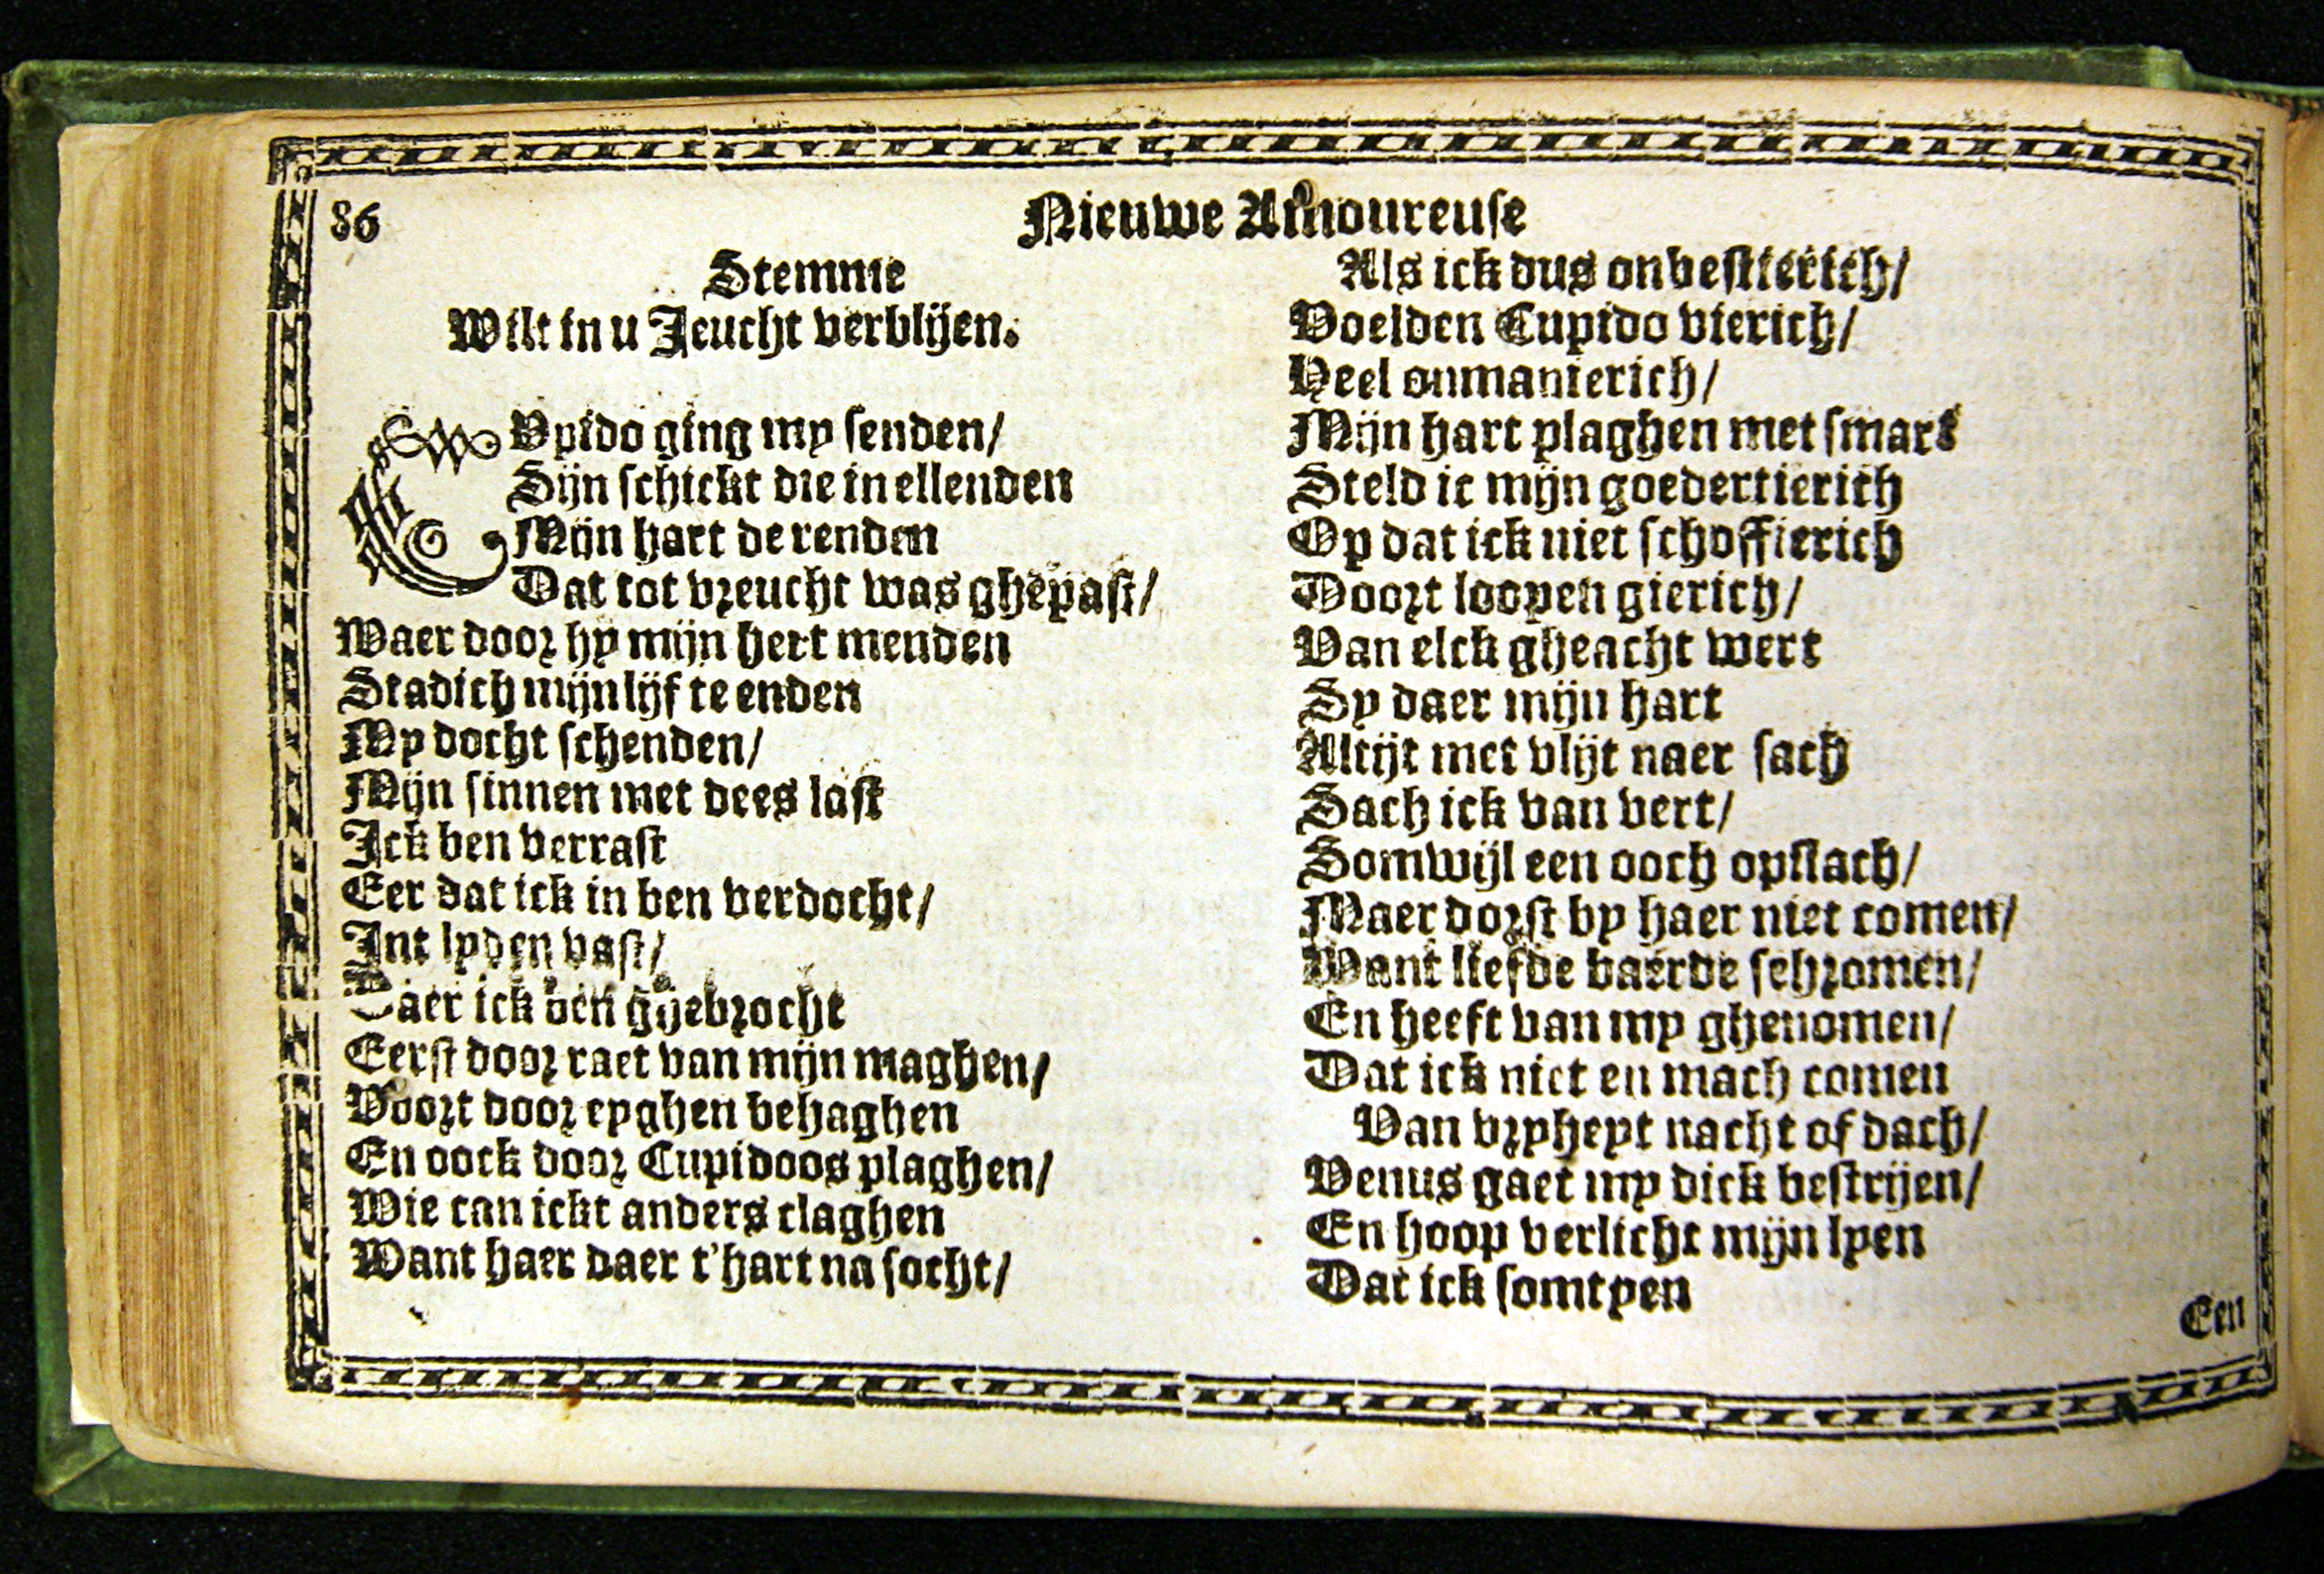 86
Nieuwe Amoureuse
Stemme
Wilt in u Jeucht verblijen.
CVpido ging my senden/
Sijn schickt die in ellenden
Mijn hart de renden
Dat tot vreucht was ghepast/
Waer door hy mijn hert menden
Stadich mijn lijf te enden
My docht schenden/
Mijn sinnen met dees last
Ick ben verrast
Eer dat ick in ben verdocht/
Int lyden vast/
Daer ick ben ghebrocht
Eerst door raet van mijn maghen/
Voort door eyghen behaghen
En oock door Cupidoos plaghen/
Wie can ickt anders claghen
Want haer daer t'hart na socht/
Als ick dus onbestierich/
Voelden Cupido vierich/
Heel onmanierich/
Mijn hart plaghen met smart
Steld ic mijn goedertierich
Op dat ick niet schoffierich
Doort loopen gierich/
Van elck gheacht wert
Sy daer mijn hart
Altijt met vlijt naer sach
Sach ick van vert/
Somwijl een ooch opslach/
Maer dorst by haer niet comen/
Want liefde baerde schromen/
En heeft van my ghenomen/
Dat ick niet en mach comen
Van vryheyt nacht of dach/
Venus gaet my dick bestrijen/
En hoop verlicht mijn lyen
Dat ick somtyen
Een